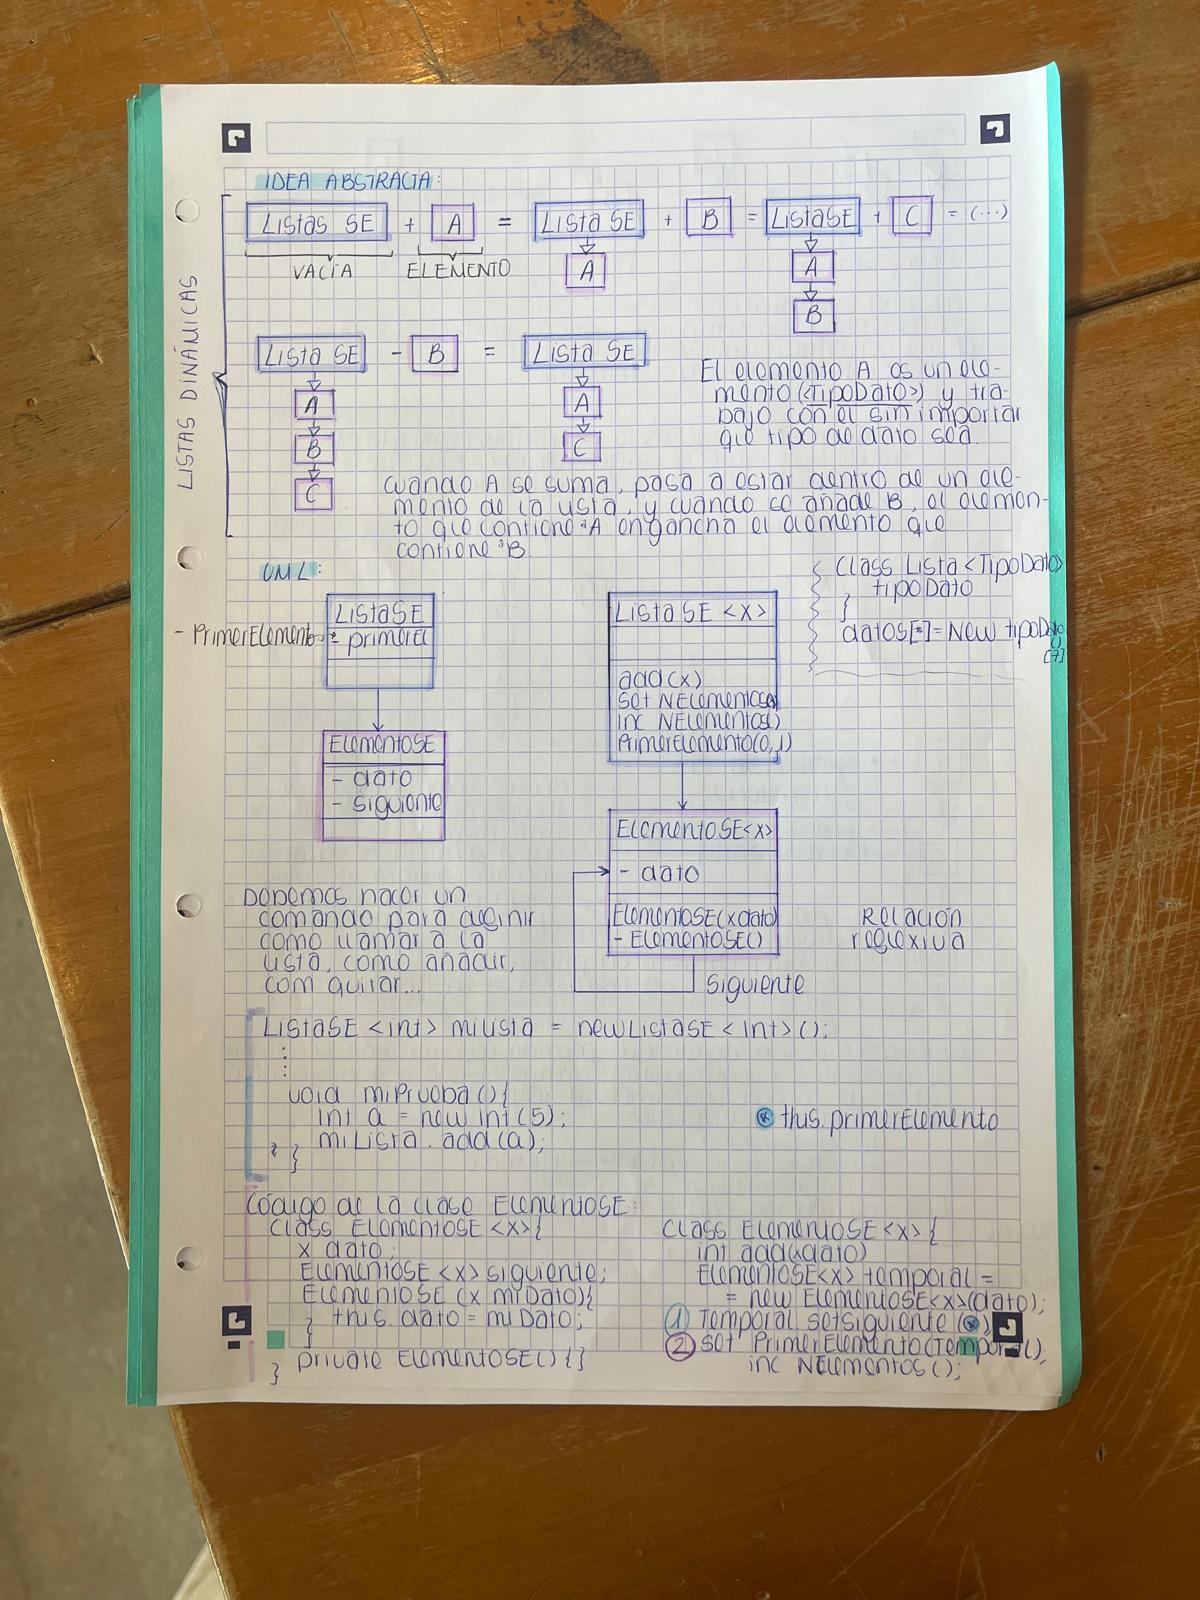 LISTAS DINÁMICAS
IDEA ABSTRACTA:
Listas SE + A = Lista SE + B = ListaSE + C = (...)
VACÍA ELEMENTO A A
B
Lista SE - B = Lista SE
A A
B C
C
El elemento A es un ele-
mento (<TipoDato>) y tra-
bajo con el sin importar
que tipo de dato sea.
cuando A se suma, pasa a estar dentro de un ele-
mento de la lista, y cuando se añade B, el elemen-
to que contiene A engancha el elemento que
contiene B.
UML:
ListaSE
- PrimerElemento
- primerEl
ElementoSE
- dato
- siguiente
ListaSE <x>
add(x)
set NElementos()
inc NElementos()
PrimerElemento(0,1)
ElementoSE<x>
- dato
ElementoSE(x dato)
- ElementoSE()
siguiente
Relación
reflexiva
class Lista <TipoDato>
tipoDato
}
datos[*]=New tipoDato
[7]
Debemos hacer un
comando para definir
como llamar a la
lista, como añadir,
com quitar...
ListaSE <int> milista = newListaSE <int>();
void miPrueba(){
int a = new int(5);
miLista.add(a);
} }
⊛ this.primerElemento
Código de la clase ElementoSE:
class ElementoSE <x>{
x dato;
ElementoSE <x> siguiente;
ElementoSE (x miDato){
this.dato = miDato;
}
private ElementoSE(){}
}
class ElementoSE <x> {
int add(xdato)
ElementoSE<x> temporal =
= new ElementoSE<x>(dato);
① Temporal.setsiguiente(⊛)
② set PrimerElemento(Temporal),
inc NElementos();